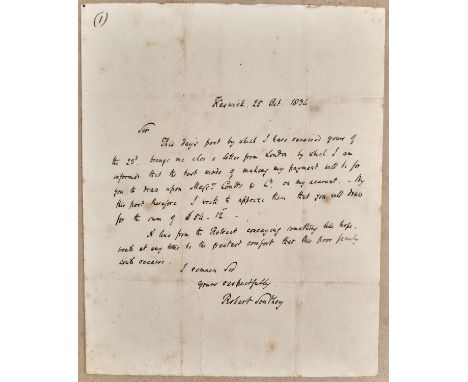 (1)
Keswick. 25 Oct. 1834
Sir
This days post by which I have received yours of
the 23d. brings me also a letter from London by which I am
informed that the best mode of making my payment will be for
you to draw upon Messrs Coutts & Co. on my account. - By
this post therefore I write to apprize them that you will draw
for the sum of £54. 12s. -
A line from the Retreat conveying something like hope
would at any time be the greatest comfort that this poor family
could receive.
I remain Sir
yours respectfully
Robert Southey